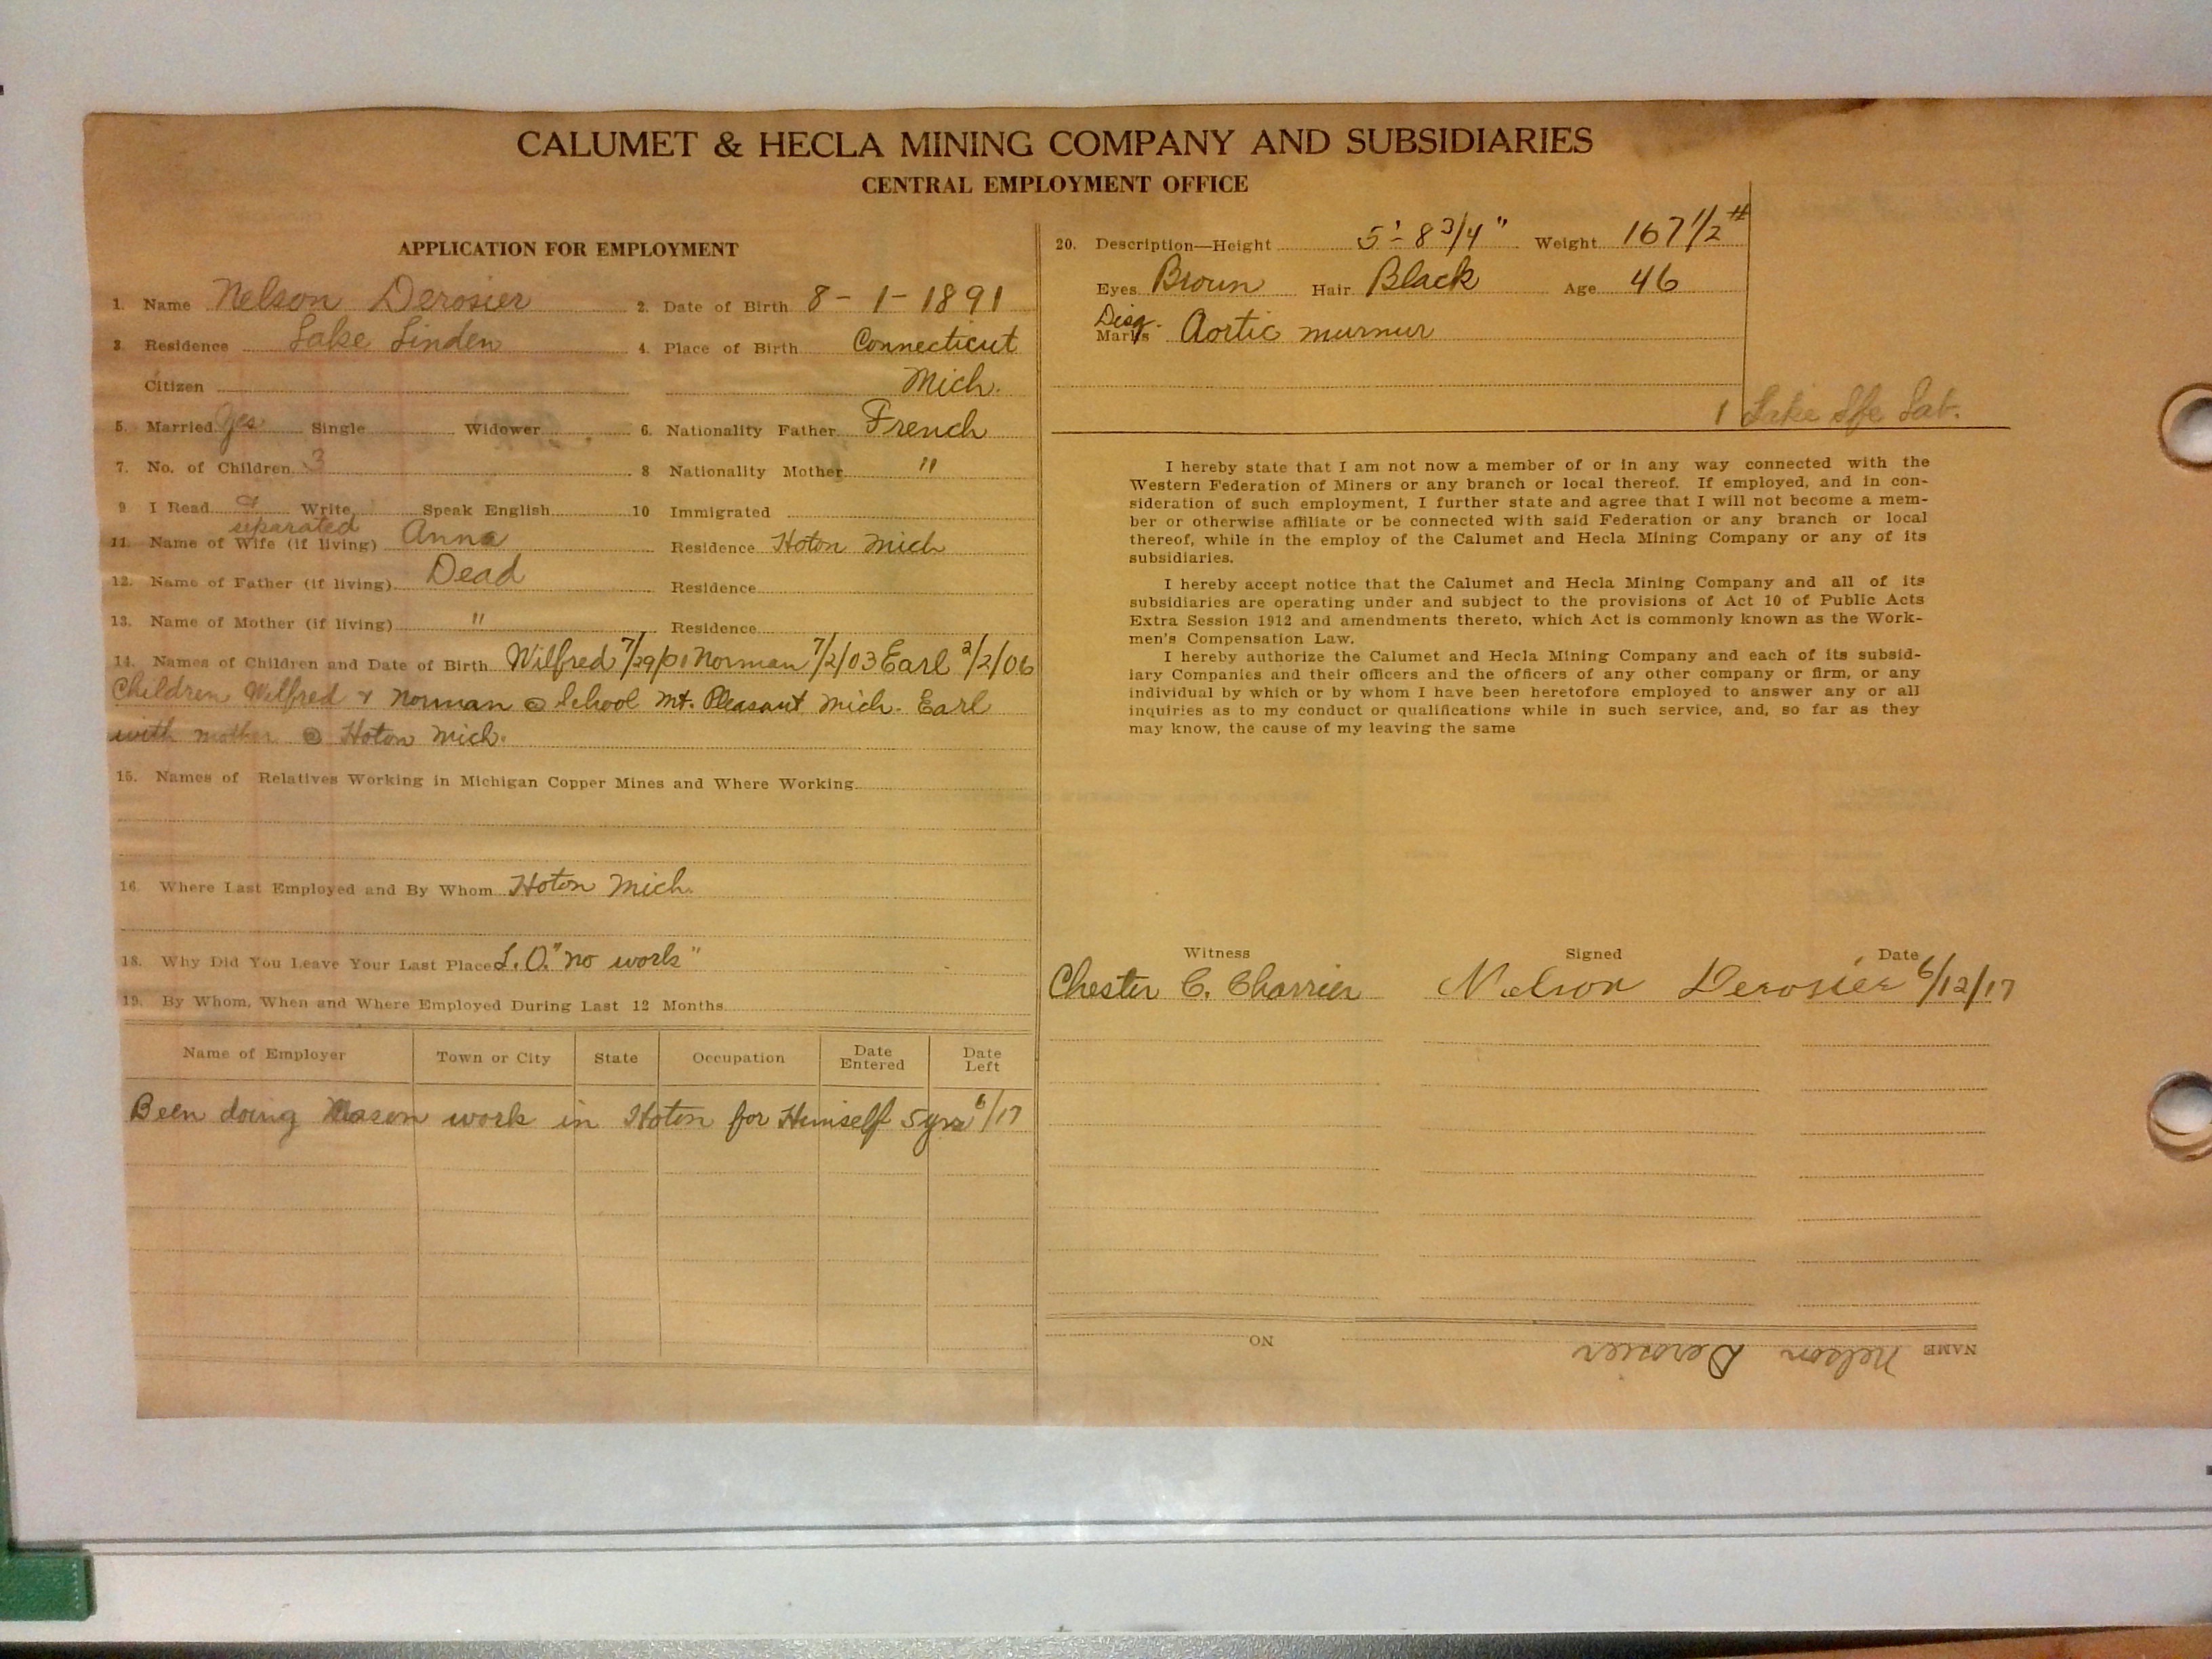 CALUMET & HECLA MINING COMPANY AND SUBSIDIARIES
CENTRAL EMPLOYMENT OFFICE
APPLICATION FOR EMPLOYMENT
1. Name Nelson Derosier 2. Date of Birth 8-1-1891
3. Residence Lake Linden 4. Place of Birth Connecticut
Citizen Mich.
5. Married Yes Single Widower 6. Nationality Father French
7. No. of Children 3 8 Nationality Mother "
9 I Read Write Speak English 10 Immigrated
separated
11. Name of Wife (if living) Anna Residence Hoton Mich
12. Name of Father (if living) Dead Residence
13. Name of Mother (if living) " Residence
14. Names of Children and Date of Birth Wilfred 7/29/01 Norman 7/2/03 Earl 2/2/06
Children Wilfred & Norman @ School Mt. Pleasant Mich. Earl
with mother @ Hoton Mich.
15. Names of Relatives Working in Michigan Copper Mines and Where Working
16. Where Last Employed and By Whom Hoton Mich.
18. Why Did You Leave Your Last Place L.O. "no work"
19. By Whom, When and Where Employed During Last 12 Months
Name of Employer Town or City State Occupation Date Entered Date Left
Been doing Mason work in Hoton for Himself 5 yrs 6/17
20. Description—Height 5'-8 3/4" Weight 167 1/2 #
Eyes Brown Hair Black Age 46
Disq.
Marks Aortic murmur
1 Lake Lab.
I hereby state that I am not now a member of or in any way connected with the
Western Federation of Miners or any branch or local thereof. If employed, and in con-
sideration of such employment, I further state and agree that I will not become a mem-
ber or otherwise affiliate or be connected with said Federation or any branch or local
thereof, while in the employ of the Calumet and Hecla Mining Company or any of its
subsidiaries.
I hereby accept notice that the Calumet and Hecla Mining Company and all of its
subsidiaries are operating under and subject to the provisions of Act 10 of Public Acts
Extra Session 1912 and amendments thereto, which Act is commonly known as the Work-
men's Compensation Law.
I hereby authorize the Calumet and Hecla Mining Company and each of its subsid-
iary Companies and their officers and the officers of any other company or firm, or any
individual by which or by whom I have been heretofore employed to answer any or all
inquiries as to my conduct or qualifications while in such service, and, so far as they
may know, the cause of my leaving the same
Witness Signed Date
Chester C. Charrier Nelson Derosier 6/12/17
NAME Nelson Derosier NO